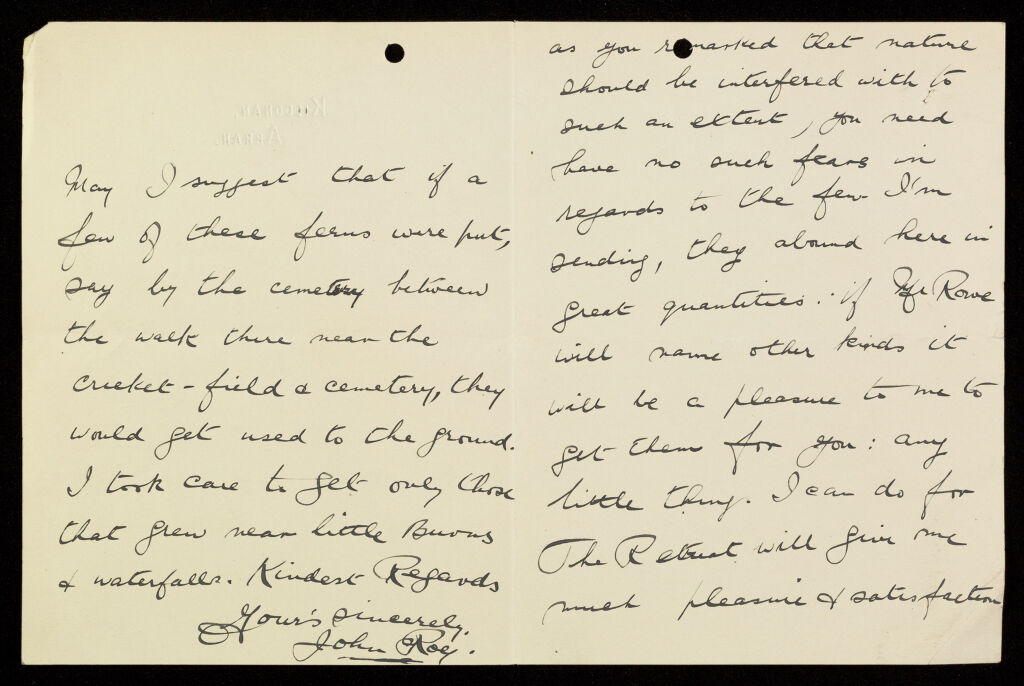 May I suggest that if a
few of these ferns were put,
say by the cemetery between
the walk there near the
cricket-field & cemetery, they
would get used to the ground.
I took care to get only those
that grew near little Burns
& waterfalls. Kindest Regards
Your's sincerely.
John Roy.
as you remarked that nature
should be interfered with to
such an extent, you need
have no such fears in
regards to the few I'm
sending, they abound here in
great quantities. if Mr Rowe
will name other kinds it
will be a pleasure to me to
get them for you: any
little thing. I can do for
The Retreat will give me
much pleasure & satisfaction